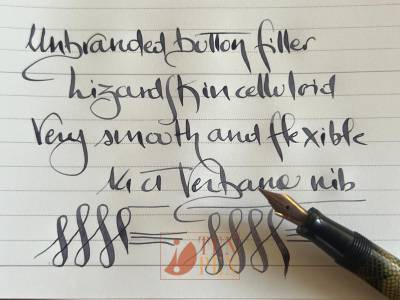 Unbranded button filler
Lizard skin celluloid
Very smooth and flexible
14 ct Verbano nib